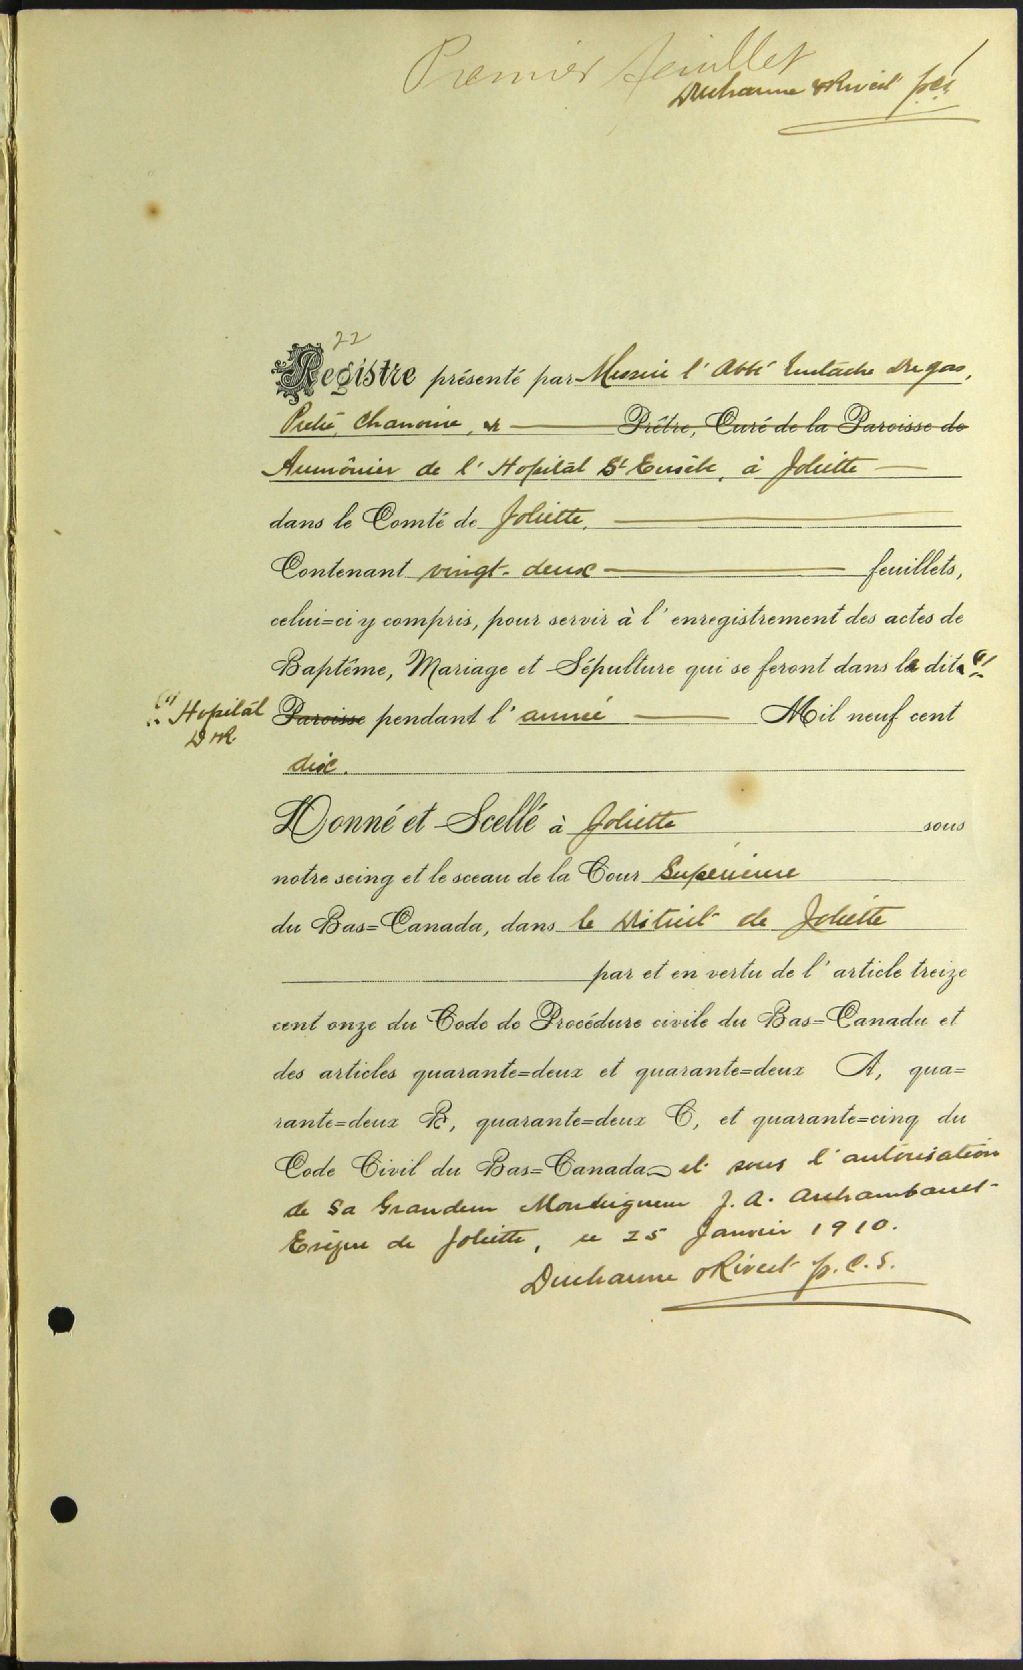 Premier feuillet
Ducharme & Rivest p.c.s.
22
Registre présenté par Messire l'Abbé Eustache Dugas,
Prêtre, Chanoine, & Prêtre, Curé de la Paroisse de
Aumônier de l'Hopital St Eusèbe, à Joliette
dans le Comté de Joliette,
Contenant vingt-deux feuillets,
celui=ci y compris, pour servir à l'enregistrement des actes de
Baptême, Mariage et Sépulture qui se feront dans le dit
Hopital
D & R
Paroisse pendant l'année Mil neuf cent
dix.
Donné et Scellé à Joliette sous
notre seing et le sceau de la Cour Supérieure
du Bas=Canada, dans le District de Joliette
par et en vertu de l'article treize
cent onze du Code de Procédure civile du Bas=Canada et
des articles quarante=deux et quarante=deux A, qua=
rante=deux B, quarante=deux C, et quarante=cinq du
Code Civil du Bas=Canada et sous l'autorisation
de Sa Grandeur Monseigneur J. A. Archambault
Evêque de Joliette, ce 25 Janvier 1910.
Ducharme & Rivest p.c.s.